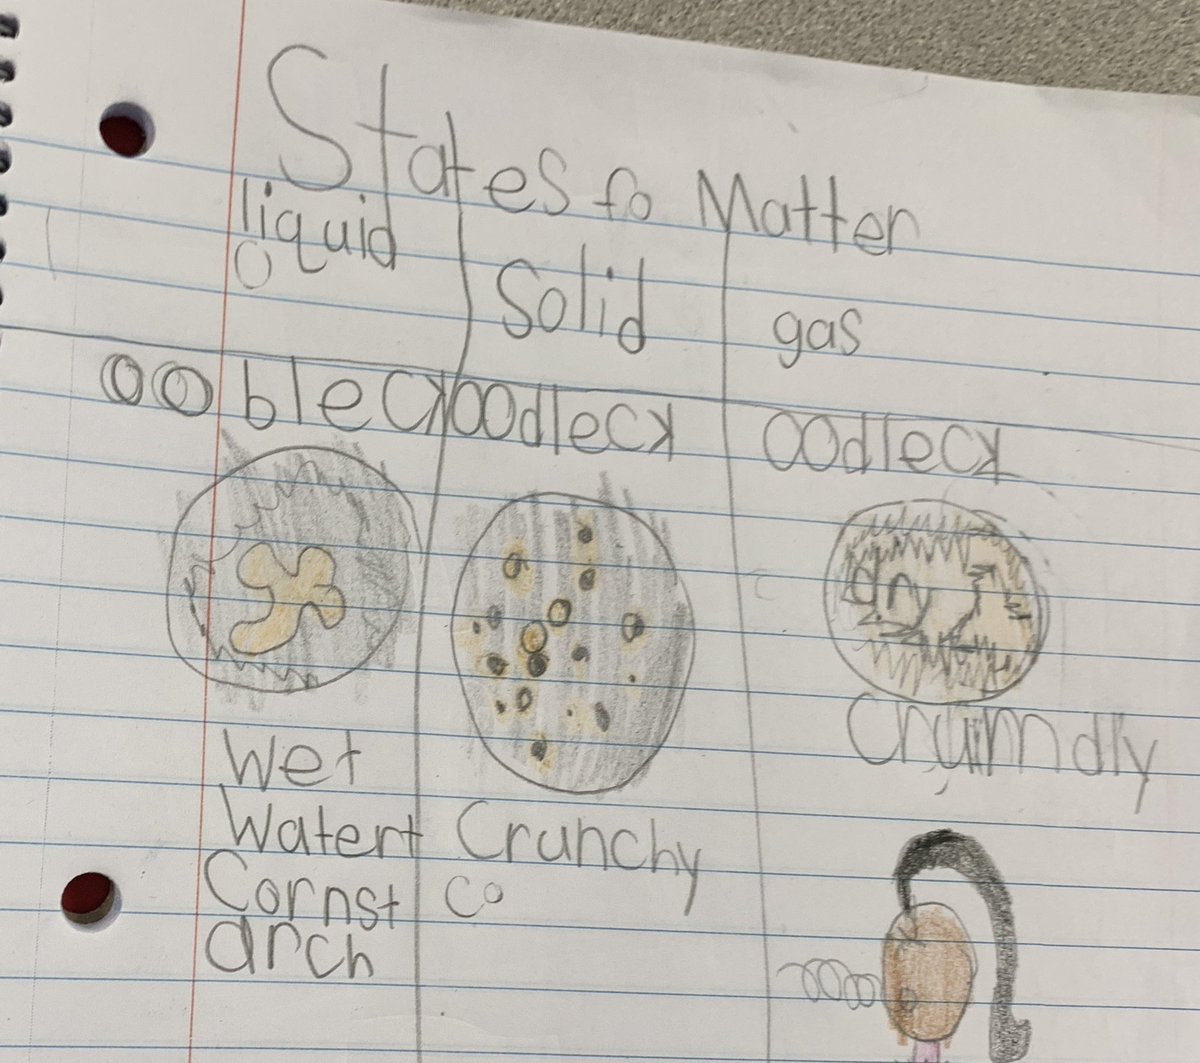 States fo Matter
liquid
Solid
gas
oobleck
oodleck
oodleck
dry
Wet
Watert
Cornst
arch
Crunchy
co
Crumdly